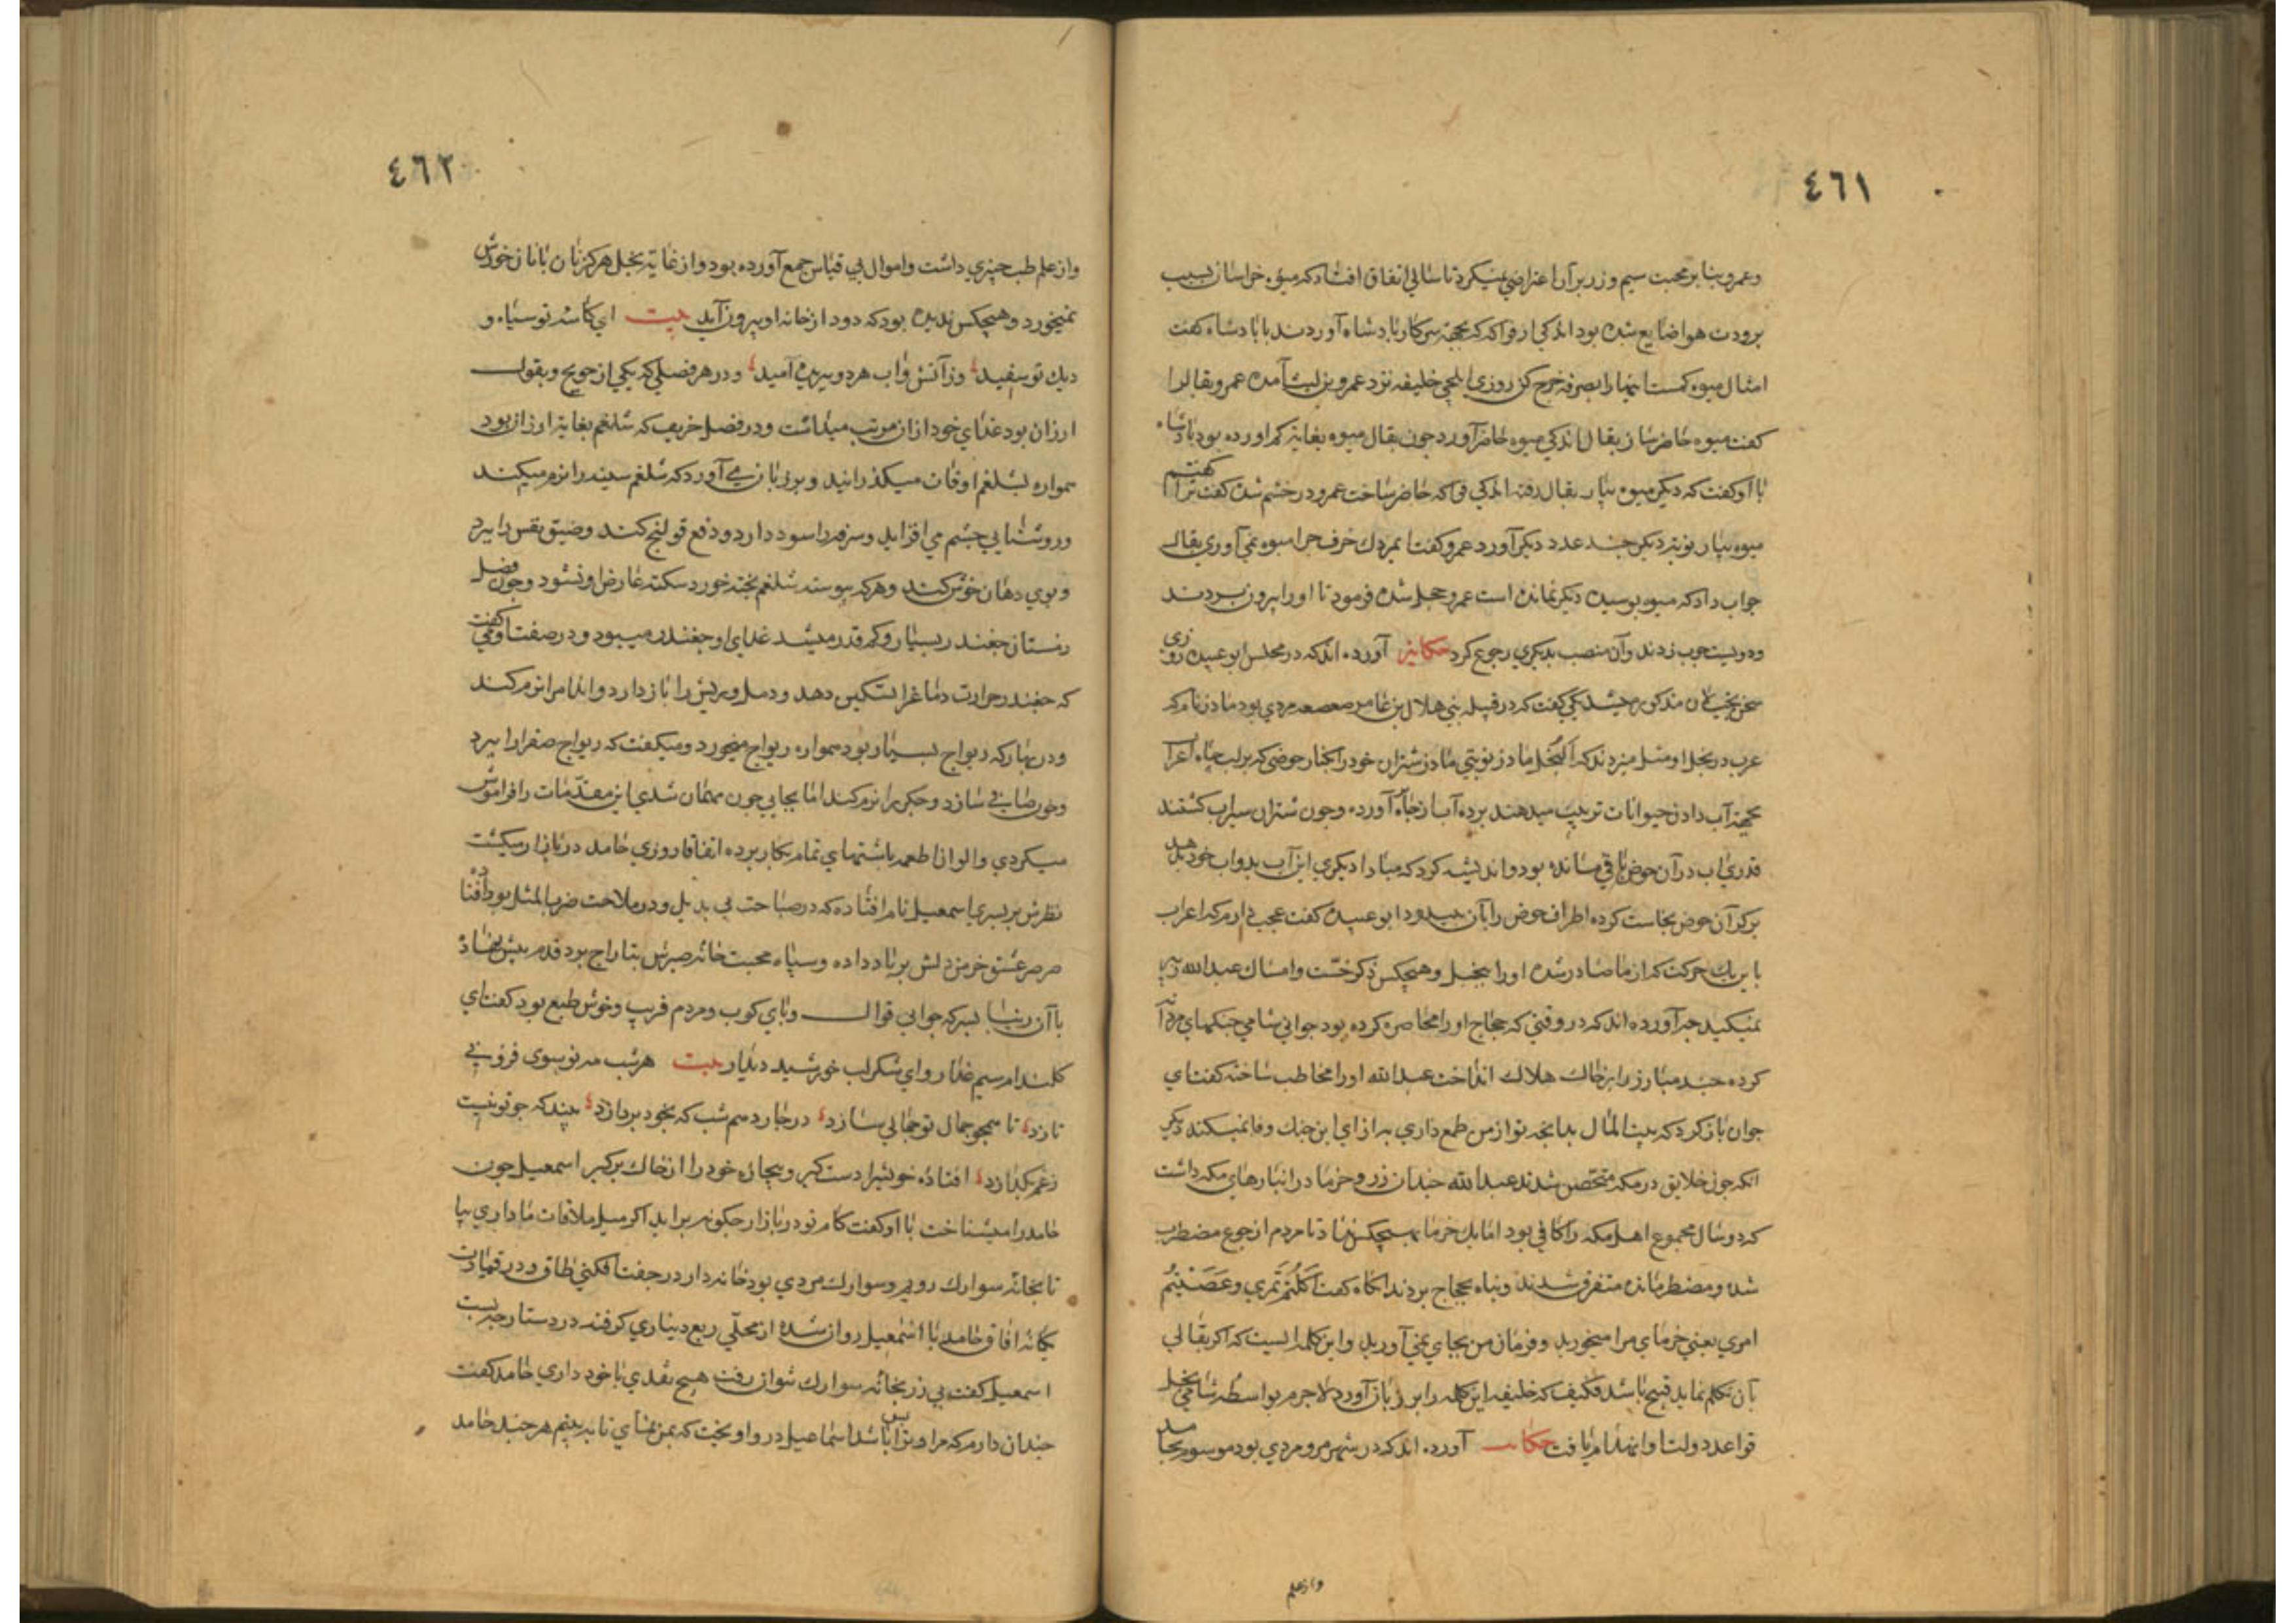 ٤٦١
وعمرو بنا بر محبت سیم وزر بر آن اعتراضی نمیکرد تا سالی اتفاق افتاد که میوه خراسان بسبب
برودت هوا ضایع شده بود اندکی از فواکه که بجهة سرکار پادشاه آوردند با پادشاه کفت
امثال میوه کمست اینها را بصرفه خرج کن روزی ایلچی خلیفه نزد عمرو بن لیث آمده عمرو بقالرا
کفت میوه حاضر ساز بقال اندکی میوه حاضر آورد چون بقال میوه بغایة کم اورده بود پادشاه
با او کفت که دیکر میوه بیار بقال رفته اندکی فواکه حاضر ساخت عمرو در خشم شده کفت ترا کفتم
میوه بیار نوبة دیکر چند عدد دیکر آورد عمرو کفت ای مردك خرف چرا میوه نمی آوری بقال
جواب داد که میوه پوسیده دیکر نمانده است عمرو خجل شده فرمود تا او را بیرون بردند
ودویست چوب زدند وآن منصب بدیکری رجوع کرد حکایة آورده اند که در مجلس ابو عبیده روزی
سخن بخیلان مذکور میشد یکی کفت که در قبیله بنی هلال بن عامر صعصعه مردی بود مادر نام که
عرب در بخل او مثل میزدند که ابخل مادر نوبتی مادر شتران خود را بکنار حوضی که بر لب چاه اعراب
بجهة آب دادن حیوانات ترتیب میدهند برده آب از چاه آورده وچون شتران سیراب کشتند
قدری اب در آن حوض باقی مانده بود واندیشه کرد که مبادا دیکری این آب بدواب خود دهد
بر کرد آن حوض نجاست کرده اطراف حوض را بآن بیندود ابو عبیده کفت عجب دارم که اعراب
باین یك حرکت که از ما صادر شده او را بخیل وهیچکس ذکر خست وامساك عبد الله زبیر
نمیکنید چه آورده اند که در وقتی که حجاج او را محاصره کرده بود جوانی شامی جنکهای مردانه
کرده چند مبارز را بر خاك هلاك انداخت عبد الله او را مخاطب ساخته کفت ای
جوان باز کرد که بیت المال بدانچه تو از من طمع داری به ازای این جنك وفا نمیکند دیکر
انکه چون خلایق در مکه متحصن شدند عبد الله چندان زر وخرما در انبارهای مکه داشت
که دو سال مجموع اهل مکه را کافی بود اما یك خرما بهیچکس نداد تا مردم از جوع مضطرب
شده ومضطر مانده متفرق شدند وپناه بحجاج بردند انکاه کفت اکلتم تمری وعصیتم
امری یعنی خرمای مرا میخورید وفرمان من بجای نمی آورید واین کلمه ایست که اکر بقالی
بآن تکلم نماید قبیح باشد فکیف که خلیفه این کلمه را بر زبان آورد لاجرم بواسطه شامت بخل
قواعد دولت او انهدام یافت حکایت آورده اند که در شهر مرو مردی بود موسوم بحامد
وازعلم
٤٦٢
واز علم طب چیزی داشت واموال بی قیاس جمع آورده بود واز غایة بخل هرکز نان با نان خورش
نمیخورد وهیچکس ندیده بود که دود از خانه او بیرون آید بیت ای کاسه تو سیاه و
دیك تو سفید وز آتش واب هر دو ببریده آمید ودر هر فصلی که یکی از حویج وبقول
ارزان بود غذای خود از ان مرتب میداشت ودر فصل خریف که شلغم بغایة ارزان بود
همواره بشلغم اوقات میکذرانید وبر زبان می آورد که شلغم سینه را نرم میکند
وروشنایی چشم می افزاید وسرفه را سود دارد ودفع قولنج کند وضیق نفس را ببرد
وبوی دهان خوش کند وهر که پیوسته شلغم پخته خورد سکته عارض او نشود وچون فصل
زمستان چغندر بسیار وکم قدر میشد غذای او چغندر میبود ودر صفت او می کفت
که چغندر حرارت دماغ را تسکین دهد ودمل وریش را باز دارد واندام را نرم کند
ودر بهار که ریواج بسیار بود همواره ریواج میخورد ومیکفت که ریواج صفرا را ببرد
وخون صافی سازد وجکر را نرم کند اما بجایی چون مهمان شدی این مقدمات را فراموش
میکردی والوان اطعمه باشتهای تمام بکار برده اتفاقا روزی حامد در بازار میکشت
نظرش بر پسری اسمعیل نام افتاده که در صباحت بی بدیل ودر ملاحت ضرب المثل بود افتاده
صرصر عشق خرمن دلش بر باد داده وسپاه محبت خانه صبرش بتاراج برد قدم پیش نهاد
با آن زیبا پسر که جوانی قوال وپای کوب ومردم فریب وخوش طبع بود کفت ای
کلندام سیم عذار وای شکر لب خورشید دیدار بیت هر شب مه نو بسوی فزونی
تازد تا همچو جمال تو جمالی سازد در چارده هم شب که بخود پردازد بیند که چو تو نیست
زغم بکدازد افتاده خویشرا دست کیر وبیچاره خود را از خاك برکیر اسمعیل چون
حامد را میشناخت با او کفت کام تو در بازار چکونه بر اید اکر میل ملاقات ما داری بیا
تا بخانه سوارك رویم وسوارك مردی بود خانه دار در جفت افکنی طاق ودر قیادت
یکانه افاق حامد با اسمعیل روان شده از محلی ربع دیناری کرفته در دستارچه بست
اسمعیل کفت بی زر بخانه سوارك نتوان رفت هیچ نقدی با خود داری حامد کفت
چندان دارم که مرا وترا بس باشد اسماعیل در و اویخت که بمن نمای تا ببینم هر چند حامد